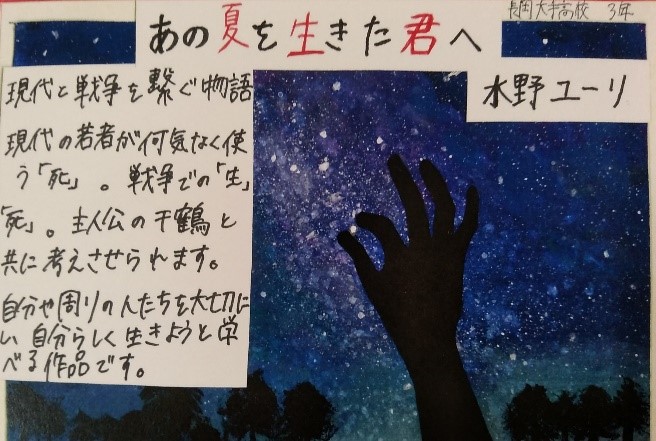 長岡大手高校 3年
あの夏を生きた君へ
水野ユーリ
現代と戦争を繋ぐ物語
現代の若者が何気なく使
う「死」。戦争での「生」
「死」。主人公の千鶴と
共に考えさせられます。
自分や周りの人たちを大切に
い 自分らしく生きようと学
べる作品です。